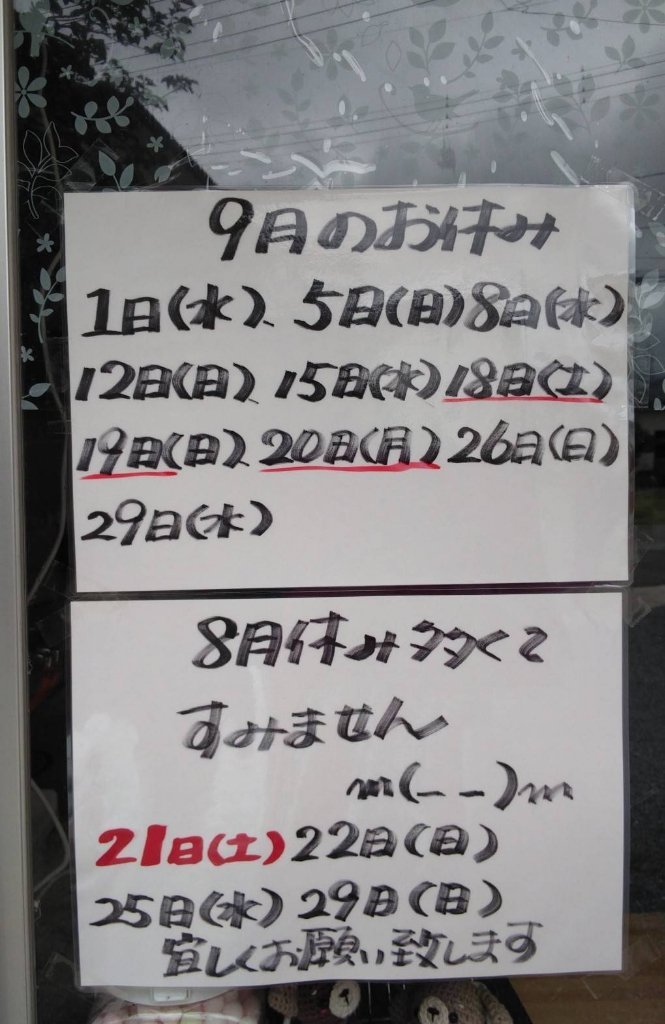 9月のお休み
1日(水)、5日(日)8日(水)
12日(日)、15日(水)18日(土)
19日(日)、20日(月)26日(日)
29日(水)
8月休み多くて
すみません
m(_ _)m
21日(土)22日(日)
25日(水)29日(日)
宜しくお願い致します